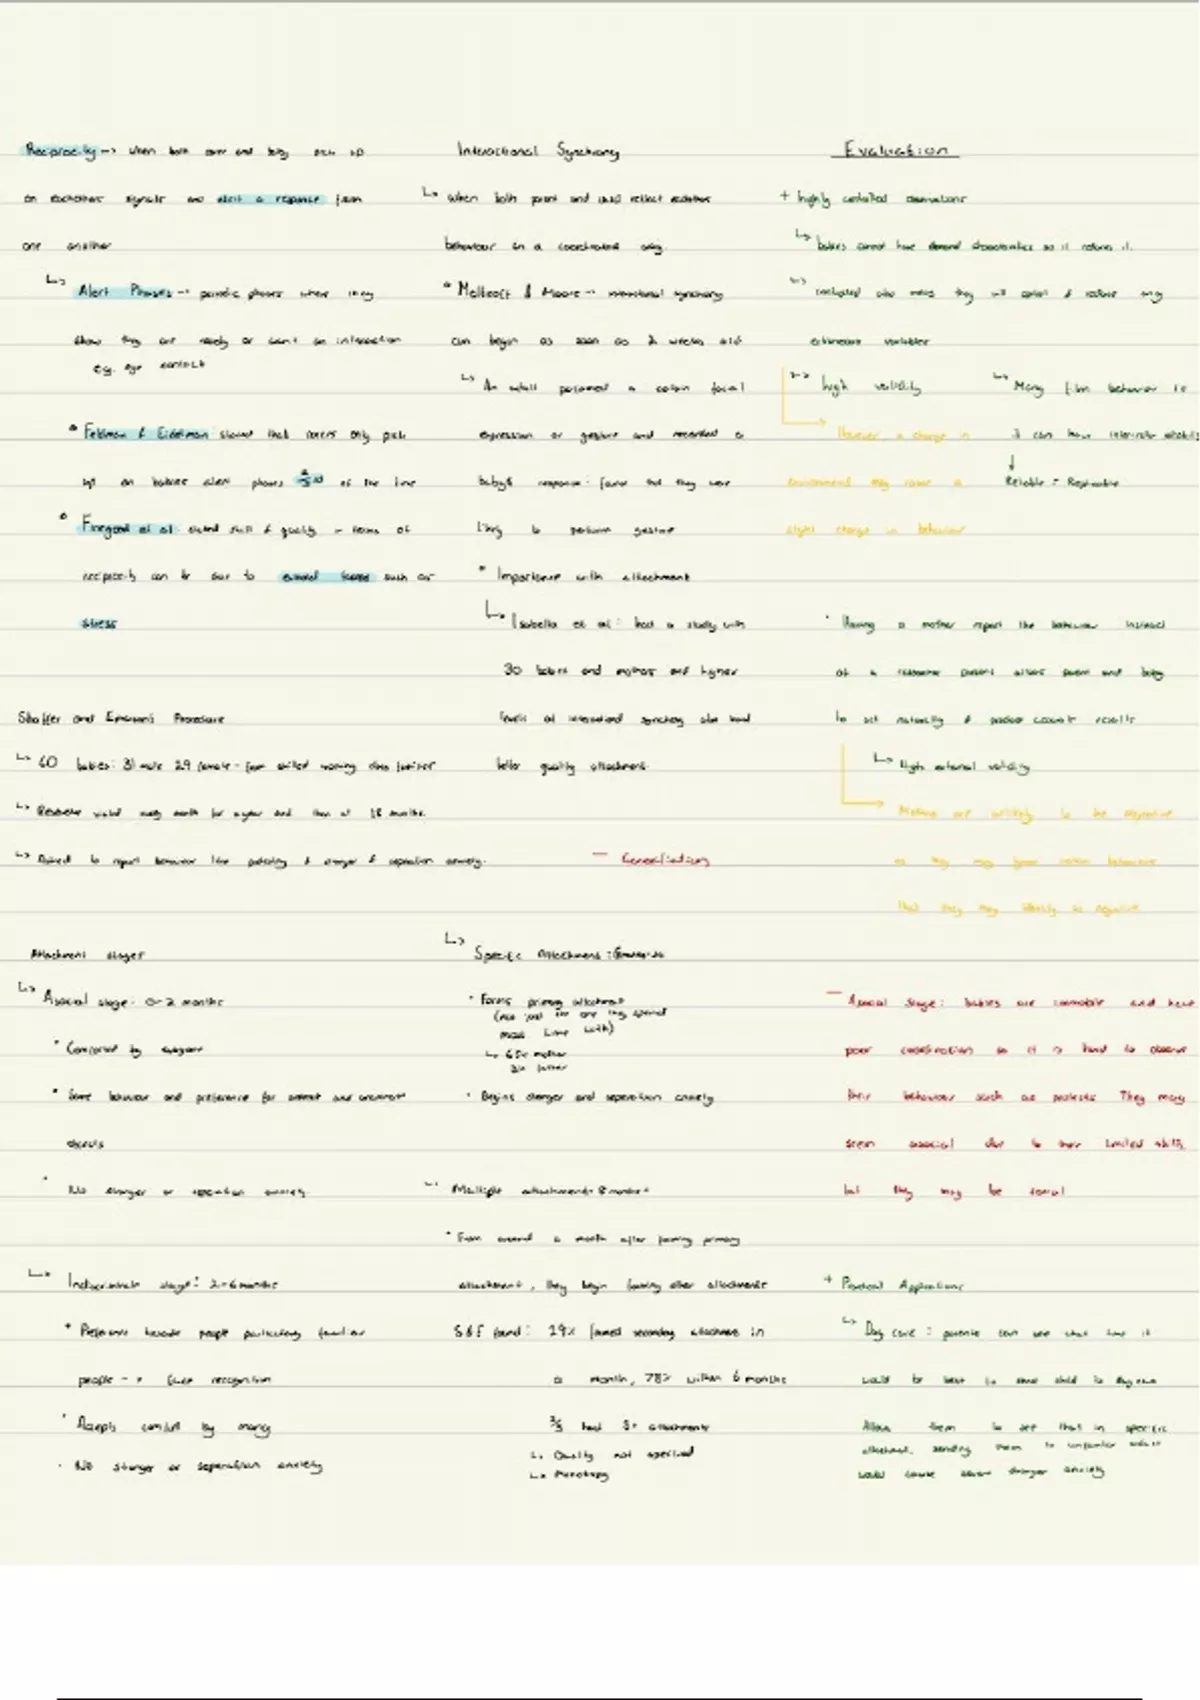 Reciprocity -> when both carer and baby pick up
on eachother signals and elicit a response from
one another
Alert Phases -> periodic phases where they
show they are ready or want an interaction
eg. eye contact
Feldman & Eidelman showed that carers only pick
up on babies alert phases 2/3rd of the time
Finegood et al stated skill & quality in terms of
reciprocity can be due to external factors such as
stress
Shaffer and Emerson's Procedure
60 babies: 31 male 29 female - from skilled working class families
visited every month for a year and then at 18 months
Asked to report behaviour like protesting & stranger & separation anxiety.
Attachment stages
Asocial stage: 0-2 months
Comforted by
Some behaviour and preference for and
No stranger or separation anxiety
Indiscriminate stage: 2-6 months
Preference towards people particularly familiar
people -> recognition
Accepts comfort by many
No stranger or separation anxiety
Interactional Synchrony
when both parent and child reflect eachothers
behaviour in a coordinated way.
Meltzoff & Moore -> interactional synchrony
can begin as soon as 2 weeks old
An adult performed a certain facial
expression or gesture and recorded a
baby's response: found that they were
likely to perform gesture
Importance with attachment
Isabella et al: had a study with
30 babies and mothers and higher
levels of interactional synchrony also had
better quality attachment
- Generalisation
Specific Attachment:
Forms primary attachment
(not just for one they spend
most time with)
65% mother
3% father
Begins stranger and separation anxiety
Multiple attachment: 8 months+
From around a month after forming primary
attachment, they begin forming other attachments
S&E found: 29% formed secondary attachment in
a month, 78% within 6 months
had 5+ attachments
Quality not specified
Evaluation
+ highly controlled observations
babies cannot have demand characteristics so it reduces it.
controlled also means they will control & reduce any
extraneous variables
high validity
Many film behaviour so
However a change in
it can have inter-rater reliability
environment may cause a
Reliable = Replicable
slight change in behaviour
Having a mother report the behaviour instead
of a researcher present allows parent and baby
to act naturally & produce accurate results
High external validity
Mothers are unlikely to be objective
as they may ignore certain behaviours
that they may identify as negative
- Asocial Stage: babies are immobile and have
poor coordination so it is hard to observe
their behaviour such as protests They may
seem asocial due to their limited skills
but they may be social
+ Practical Applications
Day care: parents can see what time it
would be best to send child to daycare
Allow them to see that in specific
attachment, sending them to unfamiliar adult
would cause stranger anxiety